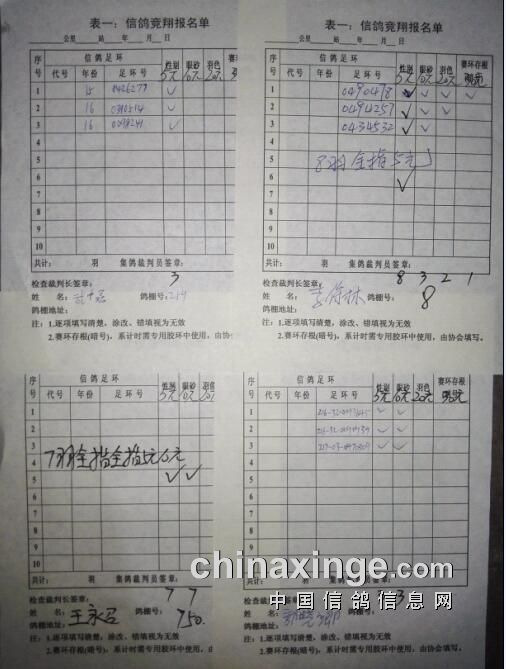 表一：信鸽竞翔报名单
公里 站 年 月 日
序号 信鸽足环 性别 眼砂 羽色 赛环存根
代号 年份 足环号 5元 10元 20元
1 15
2 16 0310514
3 16
4
5
6
7
8
9
10
共计： 羽 集鸽裁判员签章：
检查裁判长签章： 3
姓 名： 鸽棚号：
鸽棚地址：
注：1.逐项填写清楚，涂改、错填视为无效
2.赛环存根(暗号)，累计时需专用胶环中使用，由协
表一：信鸽竞翔报名单
公里 站 年 月 日
序号 信鸽足环 性别 眼砂 羽色 赛环存根
代号 年份 足环号 5元 10元 20元
1 0490418
2 0494257
3 0434532
4
5 8羽全指5元
6
7
8
9
10
共计： 羽 集鸽裁判员签章：
检查裁判长签章： 8 3 2 1
姓 名： 李 林 鸽棚号： 8
鸽棚地址：
注：1.逐项填写清楚，涂改、错填视为无效
2.赛环存根(暗号)，累计时需专用胶环中使用，由协会填写。
序号 信鸽足环 性别 眼砂 羽色
代号 年份 足环号 5元 10元 20元
1
2
3
4 7羽全指全指5元
5
6
7
8
9
10
共计： 羽 集鸽裁判员签章：
检查裁判长签章： 7 7
姓 名： 王永 鸽棚号： 750.
鸽棚地址：
注：1.逐项填写清楚，涂改、错填视为无效
2.赛环存根(暗号)，累计时需专用胶环中使用，由协会
序号 信鸽足环 性别 眼砂 羽色 赛环存根
代号 年份 足环号 5元 10元 20元
1
2
3
4
5
6
7
8
9
10
共计： 羽 集鸽裁判员签章：
检查裁判长签章： 3
姓 名： 鸽棚号：
鸽棚地址：
注：1.逐项填写清楚，涂改、错填视为无效
2.赛环存根(暗号)，累计时需专用胶环中使用，由协会填写。
chinaxinge.com
中国信鸽信息网